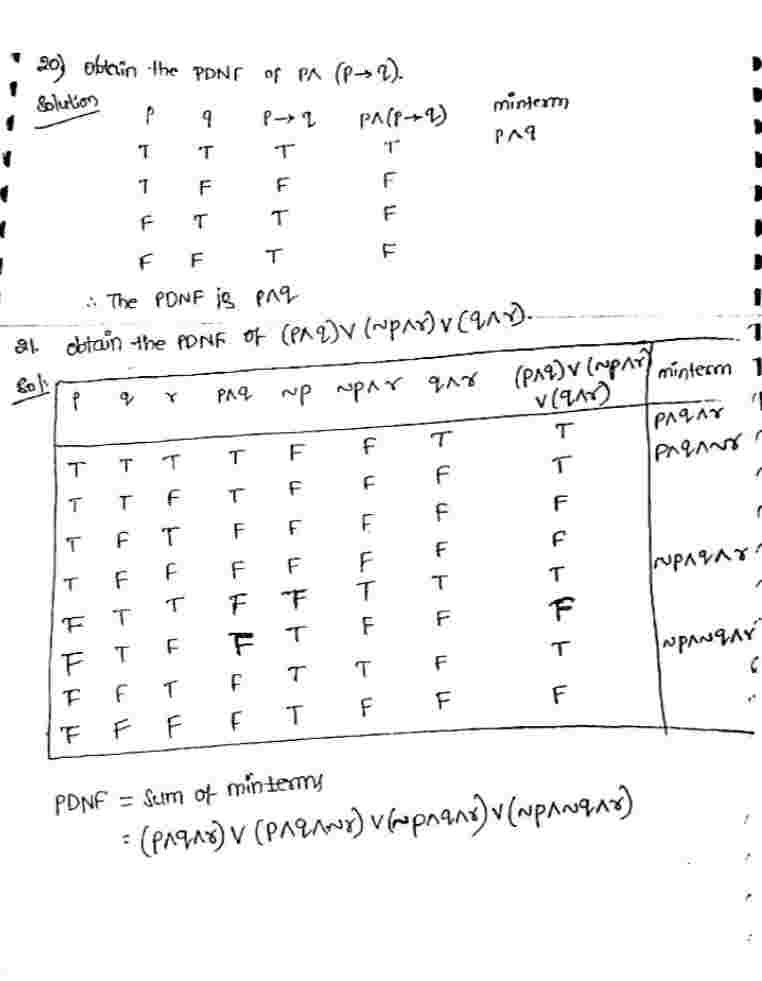 20) obtain the PDNF of P∧ (P→q).
Solution
P q P→q P∧(P→q) minterm
T T T T P∧q
T F F F
F T T F
F F T F
∴ The PDNF is P∧q
21. obtain the PDNF of (P∧q)∨(~P∧r)∨(q∧r).
Sol:
P q r P∧q ~P ~P∧r q∧r (P∧q)∨(~P∧r)∨(q∧r) minterm
T T T T F F T T P∧q∧r
T T F T F F F T P∧q∧~r
T F T F F F F F
T F F F F F F F
F T T F F T T T ~P∧q∧r
F T F F T F F F
F F T F T T F T ~P∧~q∧r
F F F F T F F F
PDNF = Sum of minterms
= (P∧q∧r)∨(P∧q∧~r)∨(~P∧q∧r)∨(~P∧~q∧r)